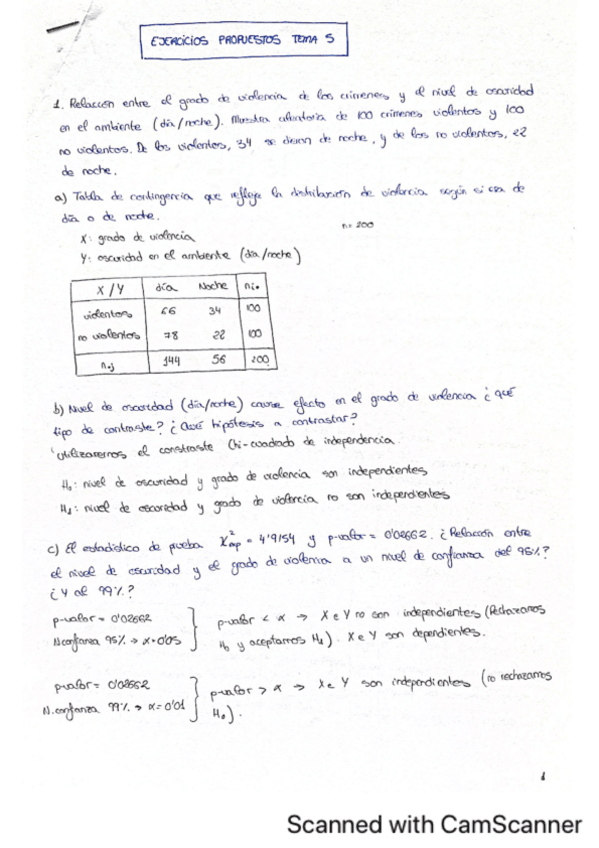 EJERCICIOS PROPUESTOS TEMA 5
1. Relación entre el grado de violencia de los crímenes y el nivel de oscuridad
en el ambiente (día/noche). Muestra aleatoria de 100 crímenes violentos y 100
no violentos. De los violentos, 34 se dieron de noche, y de los no violentos, 22
de noche.
a) Tabla de contingencia que refleje la distribución de violencia según si era de
día o de noche.
n= 200
X: grado de violencia
Y: oscuridad en el ambiente (día/noche)
X/Y día Noche ni.
violentos 66 34 100
no violentos 78 22 100
n.j 144 56 200
b) Nivel de oscuridad (día/noche) causa efecto en el grado de violencia ¿qué
tipo de contraste? ¿Qué hipótesis a contrastar?
Utilizaremos el constraste Chi-cuadrado de independencia.
H₀: nivel de oscuridad y grado de violencia son independientes
H₁: nivel de oscuridad y grado de violencia no son independientes
c) El estadístico de prueba X²exp = 4'9154 y p-valor = 0'02662. ¿Relación entre
el nivel de oscuridad y el grado de violencia a un nivel de confianza del 95%?
¿Y al 99%?
p-valor = 0'02662
N.confianza 95% → α=0'05
p-valor < α → X e Y no son independientes (Rechazamos
H₀ y aceptamos H₁). X e Y son dependientes.
p-valor = 0'02662
N.confianza 99% → α=0'01
p-valor > α → X e Y son independientes (no rechazamos
H₀).
1
Scanned with CamScanner